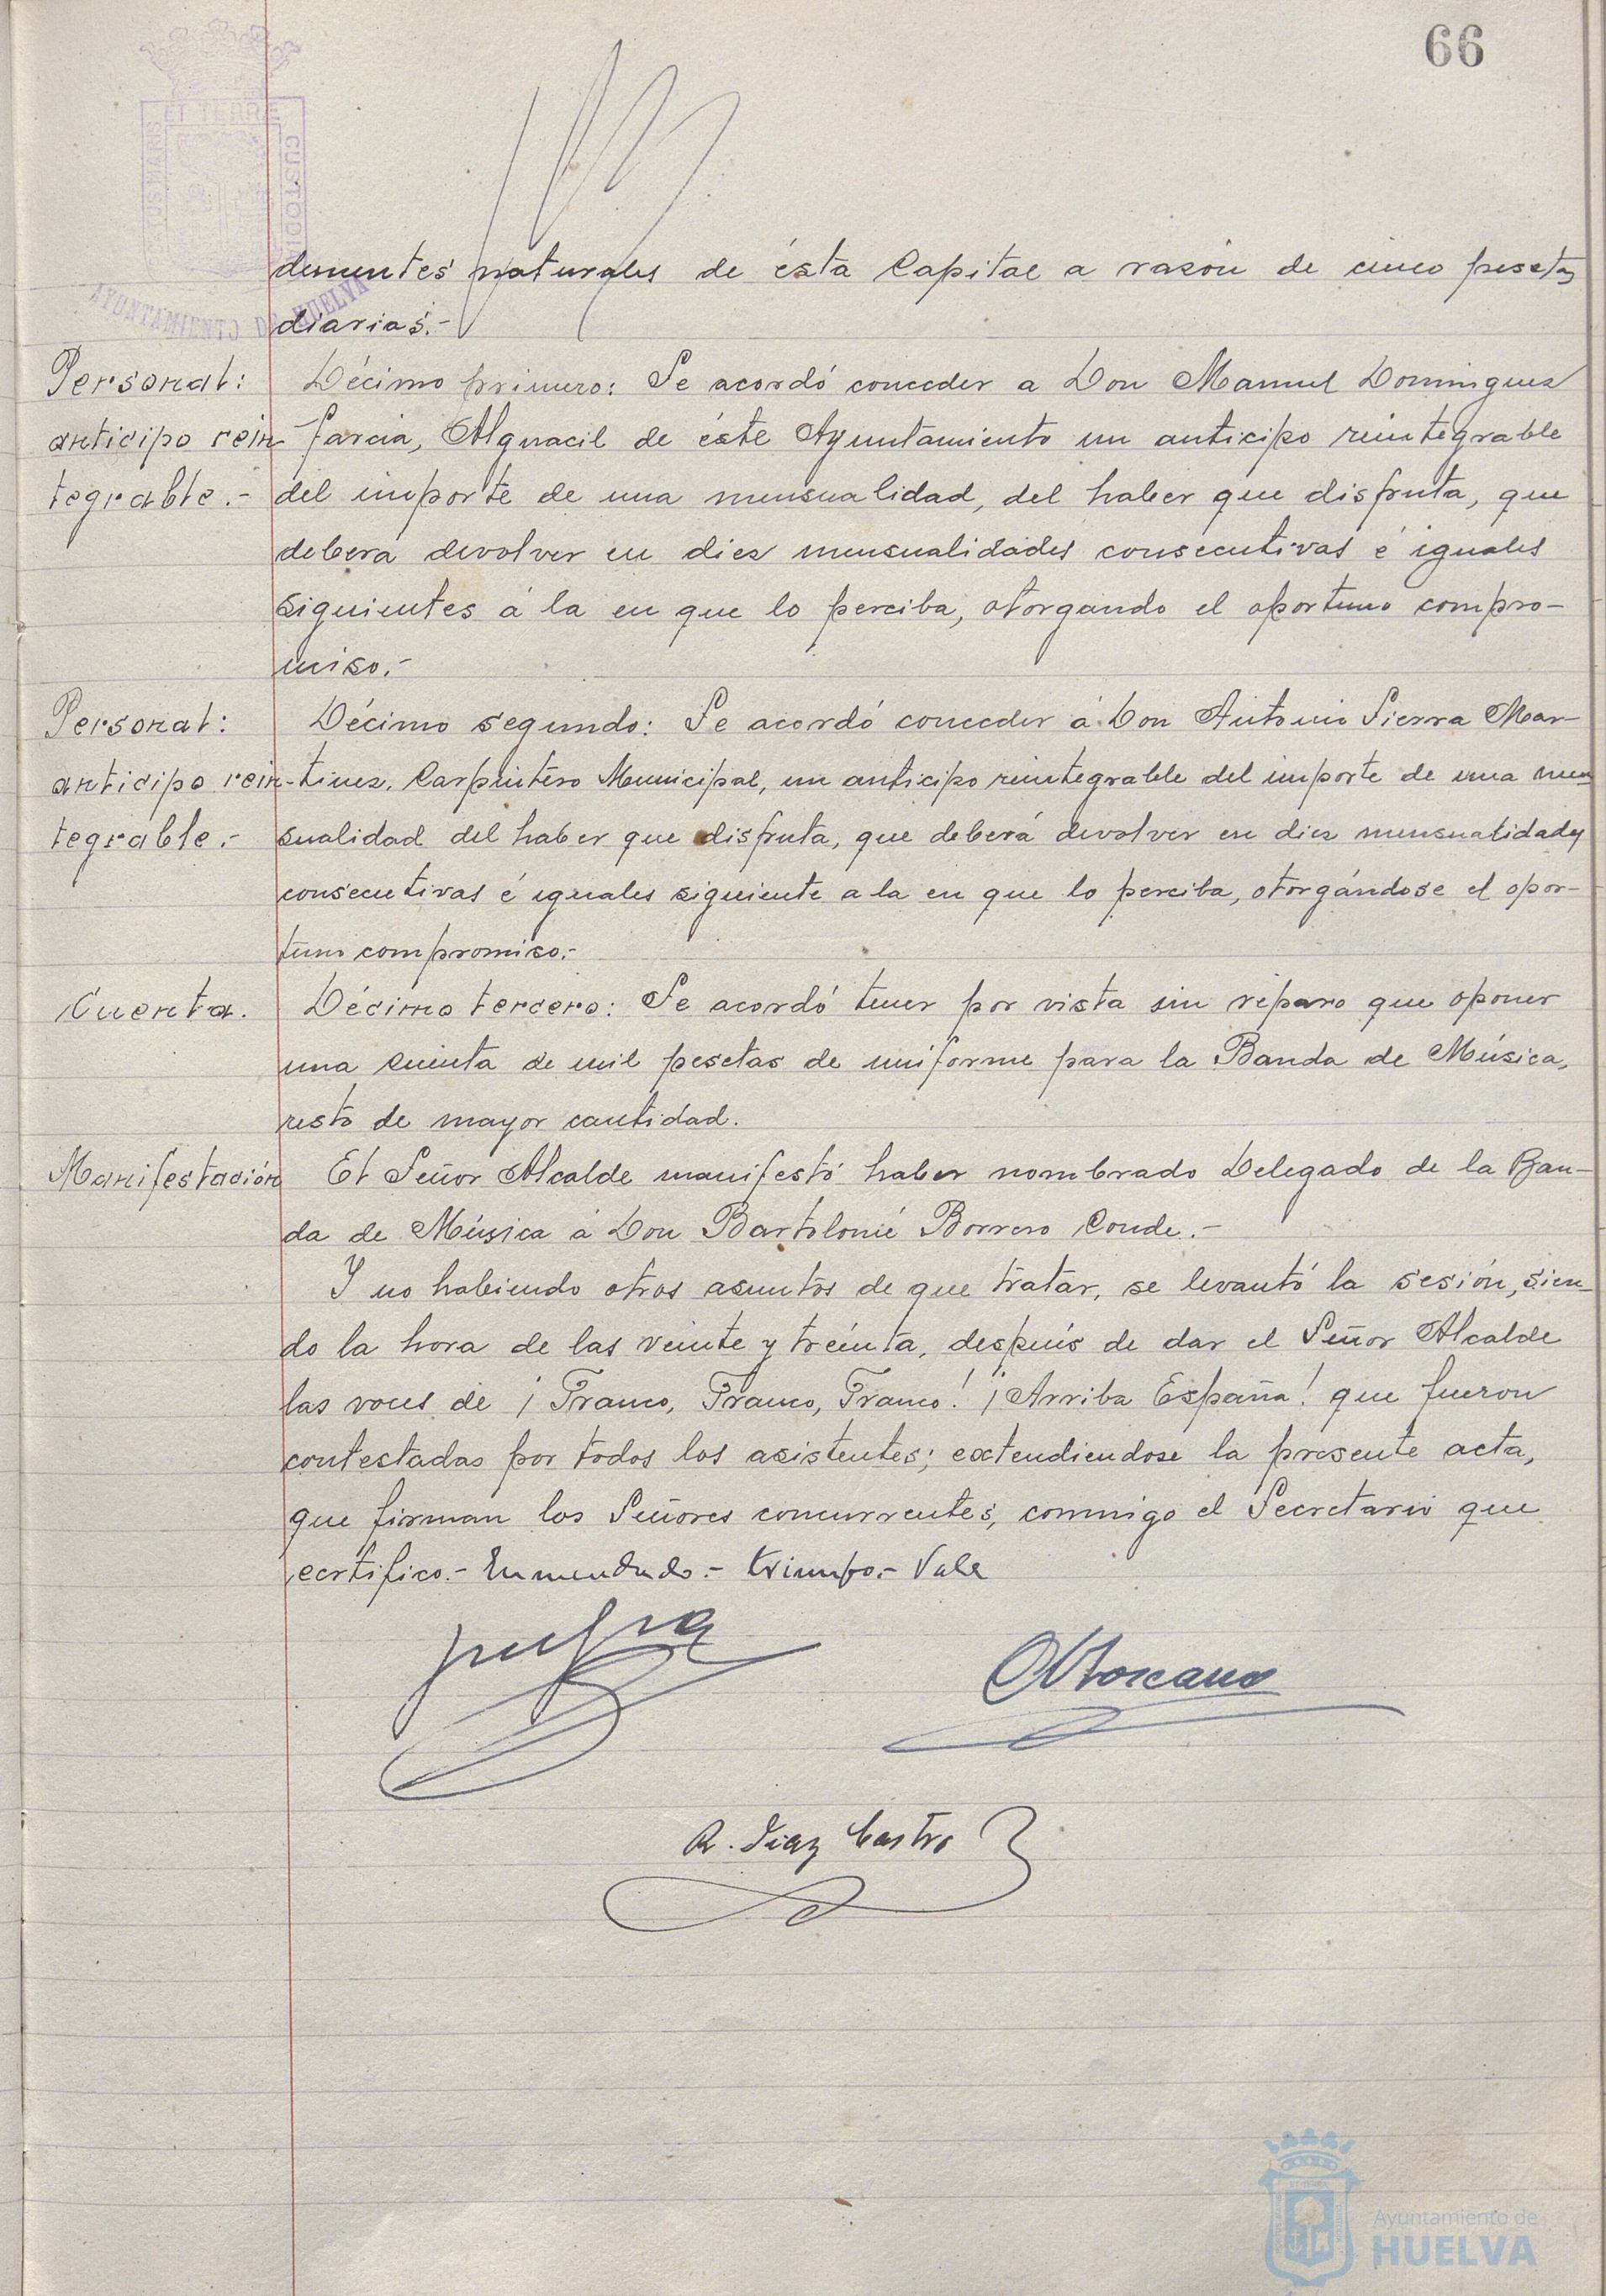 66
ET TERRE
CUSTODIA
AYUNTAMIENTO DE HUELVA
dementes naturales de ésta Capital a razón de cinco pesetas
diarias.-
Personal: Décimo primero: Se acordó conceder a Don Manuel Dominguez
anticipo rein Garcia, Alguacil de éste Ayuntamiento un anticipo reintegrable
tegrable.- del importe de una mensualidad, del haber que disfruta, que
deberá devolver en diez mensualidades consecutivas é iguales
siguientes á la en que lo perciba, otorgando el oportuno compro-
miso.-
Personal: Décimo segundo: Se acordó conceder á Don Antonio Sierra Mar-
anticipo rein- tinez, Carpintero Municipal, un anticipo reintegrable del importe de una men
tegrable.- sualidad del haber que disfruta, que deberá devolver en diez mensualidades
consecutivas é iguales siguiente a la en que lo perciba, otorgándose el opor-
tuno compromiso.-
Cuenta. Décimo tercero: Se acordó tener por vista sin reparo que oponer
una cuenta de mil pesetas de uniforme para la Banda de Música,
resto de mayor cantidad.
Manifestación El Señor Alcalde manifestó haber nombrado Delegado de la Ban-
da de Música á Don Bartolomé Borrero Conde.-
Y no habiendo otros asuntos de que tratar, se levantó la sesión, sien-
do la hora de las veinte y treinta, después de dar el Señor Alcalde
las voces de ¡Franco, Franco, Franco! ¡Arriba España! que fueron
contestadas por todos los asistentes; extendiendose la presente acta,
que firman los Señores concurrentes, conmigo el Secretario que
certifico.- Enmendado.- triunfo.- Vale
R. Diaz Castro
Ayuntamiento de
HUELVA